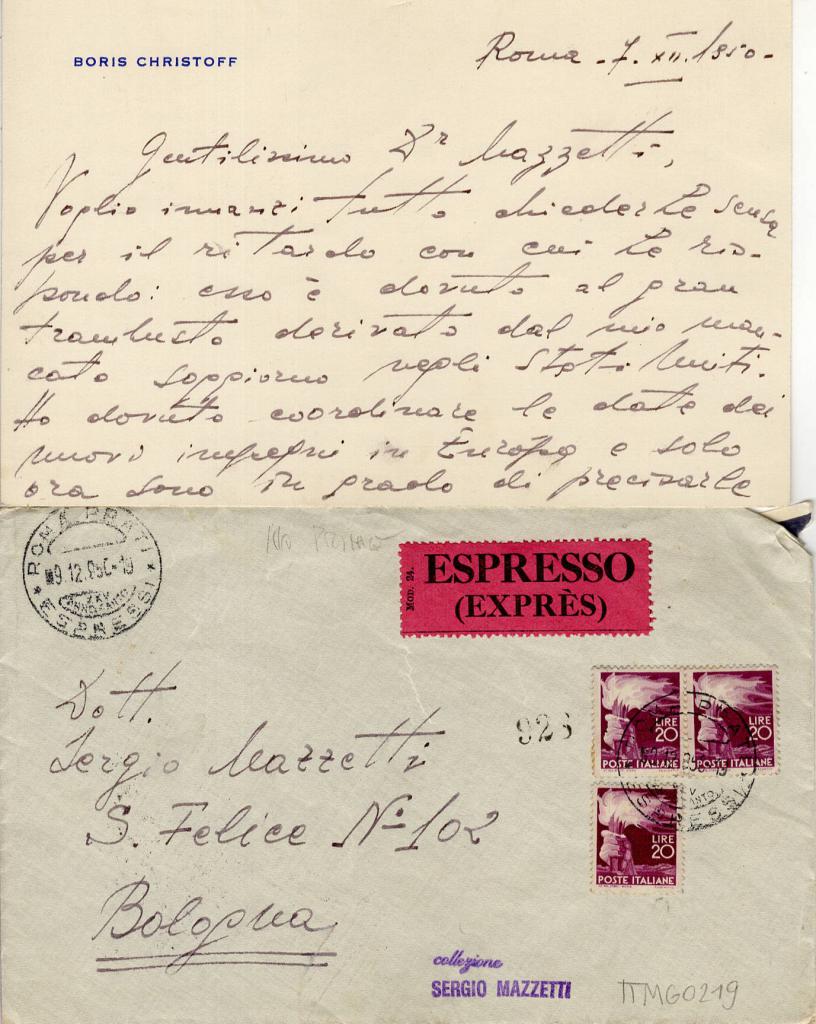 BORIS CHRISTOFF
Roma - 7. XII. 1950 -
Gentilissimo Dr Mazzetti,
Voglio innanzi tutto chiederLe scusa
per il ritardo con cui Le ris-
pondo: esso è dovuto al gran
trambusto derivato dal mio man-
cato soggiorno negli Stati Uniti.
Ho dovuto coordinare le date dei
nuovi impegni in Europa e solo
ora sono in grado di precisarLe
ROMA PRATI
9.12.950-19
ESPRESSI
ESPRESSO
(EXPRÈS)
Mod. 24.
Dott.
Sergio Mazzetti
S. Felice No 102
Bologna
928
LIRE 20
POSTE ITALIANE
LIRE 20
POSTE ITALIANE
LIRE 20
POSTE ITALIANE
collezione
SERGIO MAZZETTI
ITMG0219